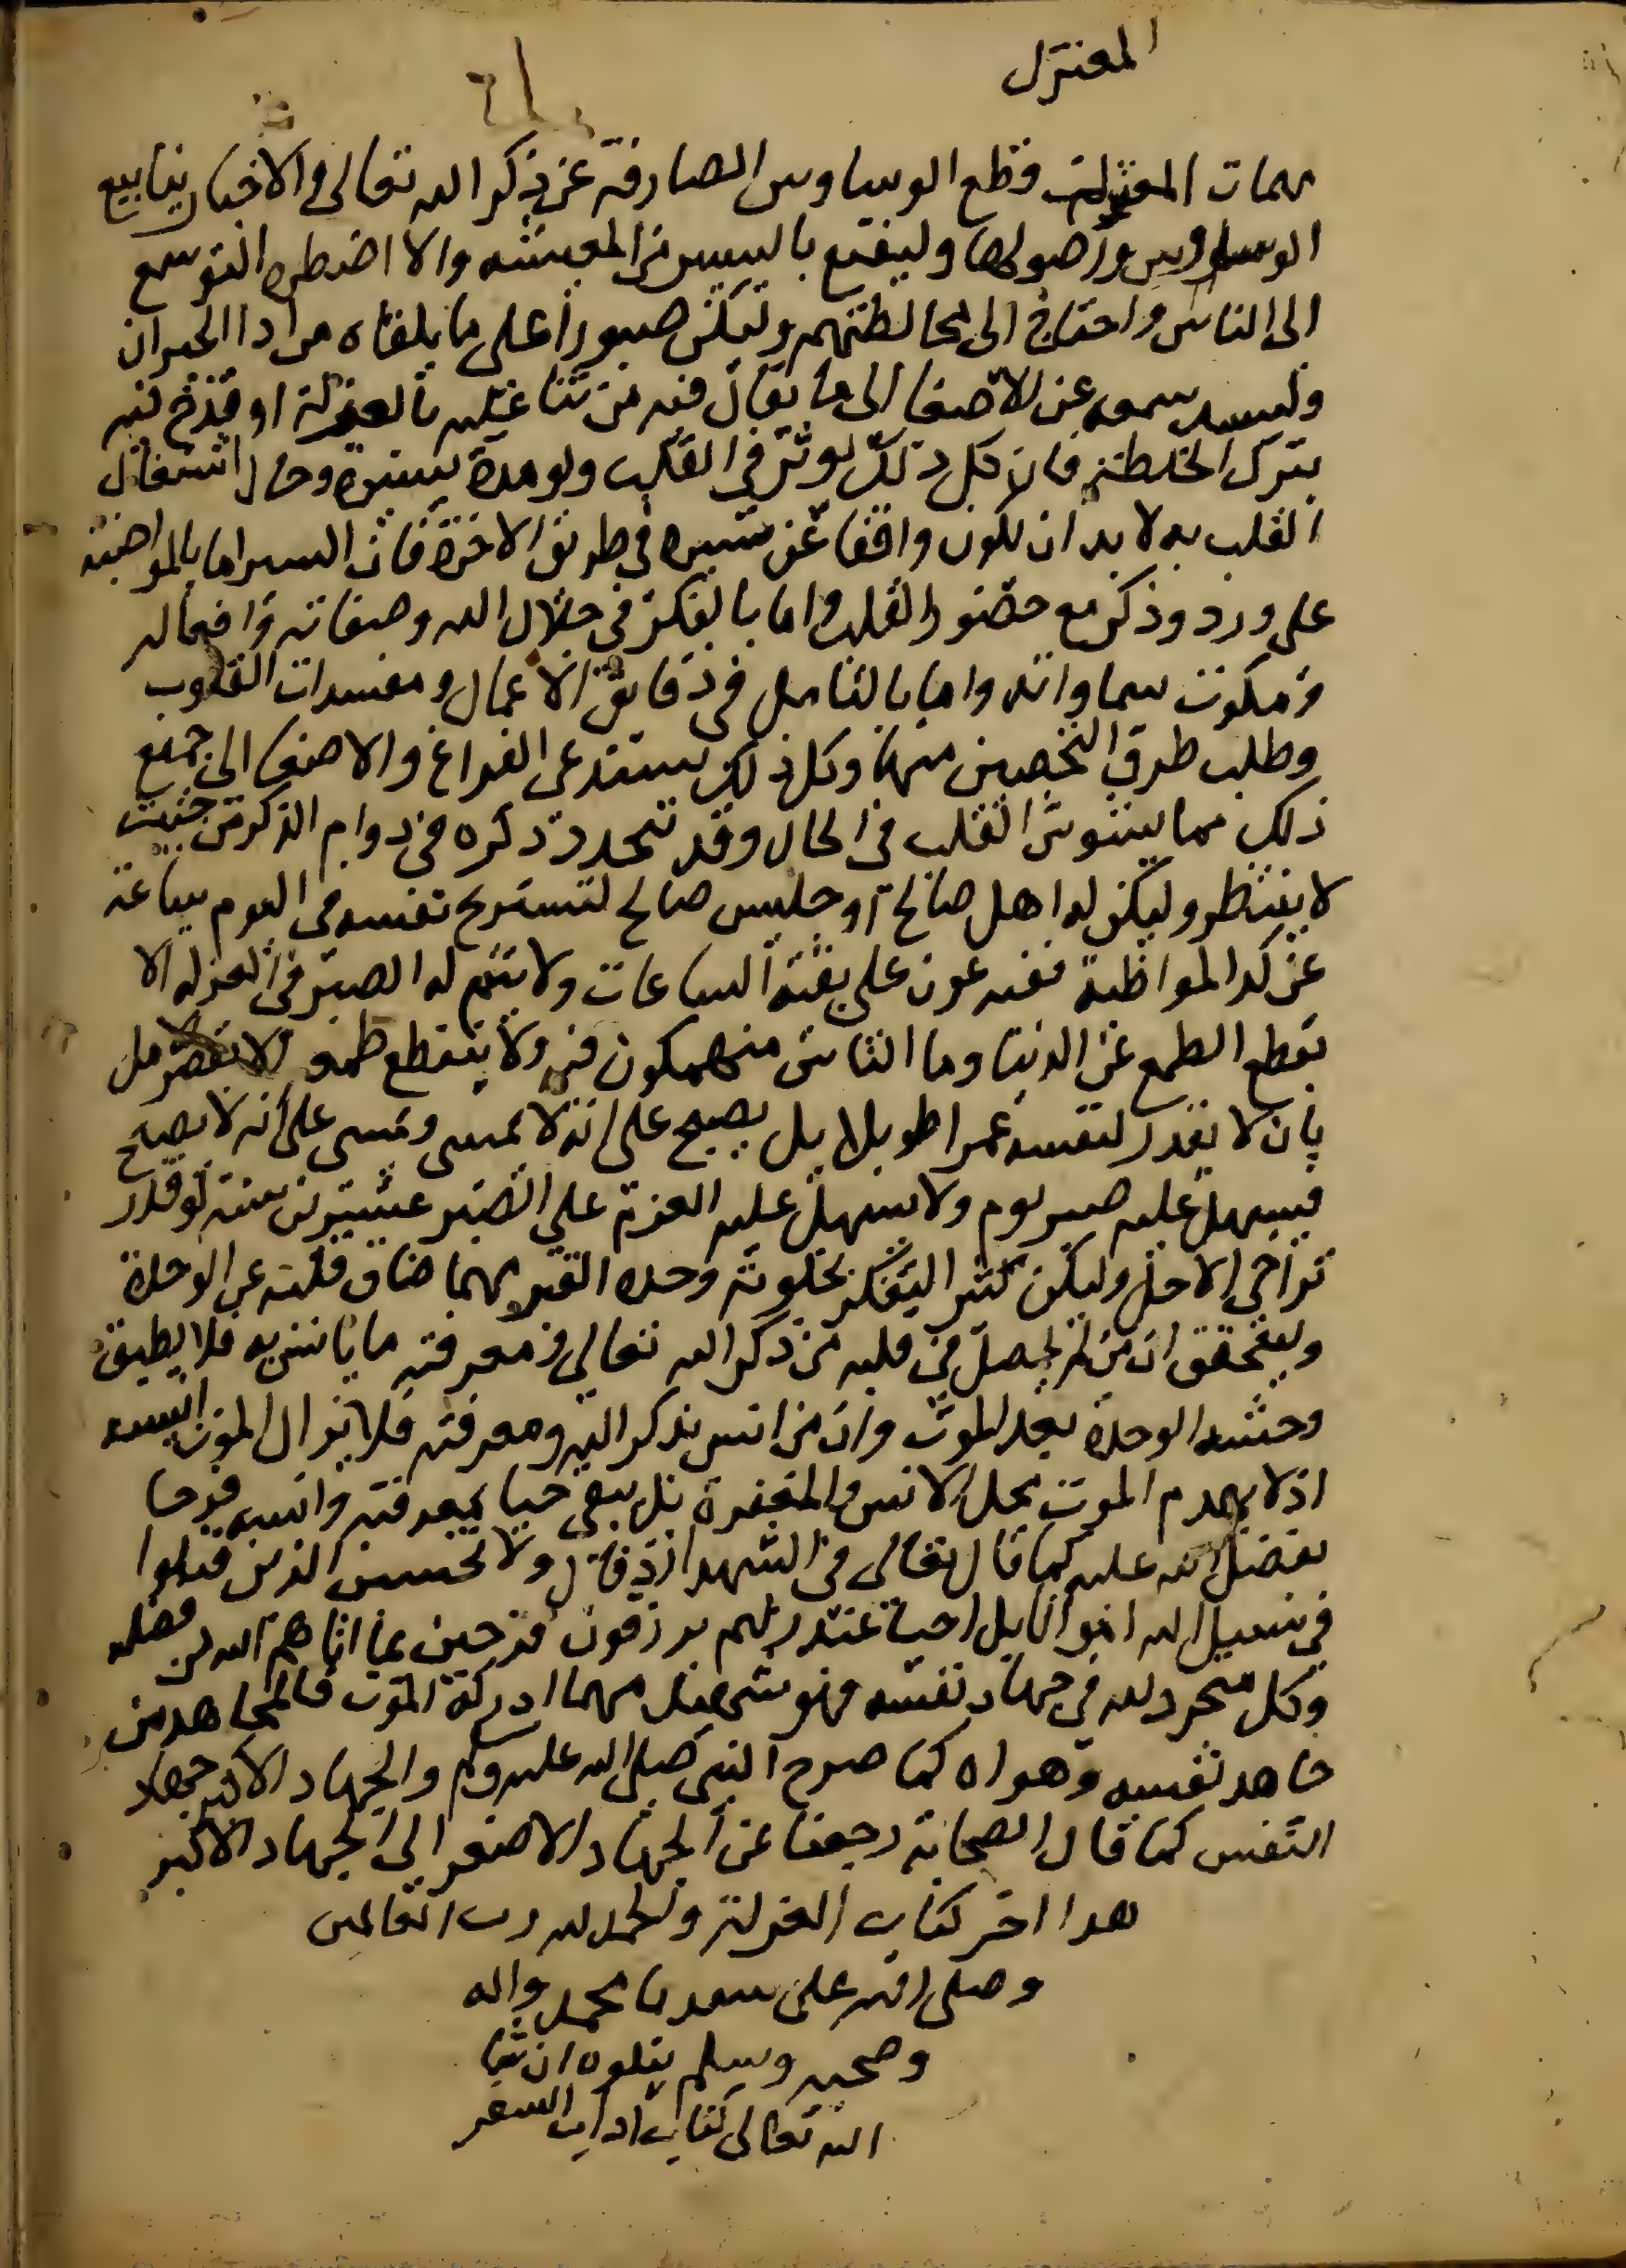 المعتزل
مهمات المعتزلة قطع الوساوس الصارفة عن ذكر الله تعالى والاخبار ينابيع
الوساوس واصولها وليقنع باليسير من المعيشه والا اضطره التوسع
الى الناس واحتاج الى مخالطتهم وليكن صبورا على ما يلقاه من اذا الجيران
وليسد سمعه عن الاصغا الى ما يقال فيه من ثنا عليه بالعزلة او قدح فيه
بترك الخلطة فان كل ذلك يوثر في القلب ولو مدة يسيرة وحال اشتغال
القلب به لا بد ان يكون واقفا عن سيره في طريق الاخرة فان السير اما بالمواضبة
على ورد وذكر مع حضور القلب واما بالفكر في جلال الله وصفاته وافعاله
وملكوت سماواته واما بالتامل في دقايق الاعمال ومفسدات القلوب
وطلب طرق التحصين منها وكل ذلك يستدعى الفراغ والاصغا الى جميع
ذلك مما يشوش القلب في الحال وقد تتجدد ذكره في دوام الذكر من حيث
لا ينتظر وليكن له اهل صالحة او جليس صالح لتستريح نفسه في اليوم ساعة
عن كد المواظبة ففيه عون على بقية الساعات ولا يتم له الصبر في العزله الا
بقطع الطمع عن الدنيا وما الناس منهمكون فيه ولا ينقطع طمعه الا بقصر الامل
بان لا يقدر لنفسه عمرا طويلا بل يصبح على انه لا يمسى ويمسى على انه لا يصبح
فيسهل عليه صبر يوم ولا يسهل عليه العزم على الصبر عشرين سنة لو قدر
تراخي الاجل وليكن كثير التفكر بخلوته وحده القبر مهما ضاق قلبه عن الوحدة
وليتحقق ان من لم يحصل في قلبه من ذكر الله تعالى ومعرفته ما يانس به فلا يطيق
وحشه الوحدة بعد الموت وان من انس بذكر الله ومعرفته فلا يزال الموت انسه
اذ لا يهدم الموت محل الانس والمغفرة بل يبقى حيا بمعرفته وانسه فرحا
بفضل الله عليه كما قال تعالى في الشهدا اذ قال ولا تحسبن الذين قتلوا
في سبيل الله امواتا بل احيا عند ربهم يرزقون فرحين بما اتاهم الله من فضله
وكل متجرد لله في جهاد نفسه فهو شهيد مهما ادركه الموت فالمجاهد من
جاهد نفسه وهواه كما صرح النبي صلى الله عليه وسلم والجهاد الاكبر جهاد
النفس كما قال الصحابة رجعنا عن الجهاد الاصغر الى الجهاد الاكبر
هذا اخر كتاب العزلة والحمد لله رب العالمين
وصلى الله على سيدنا محمد واله
وصحبه وسلم يتلوه ان شا
الله تعالى كتاب اداب السفر